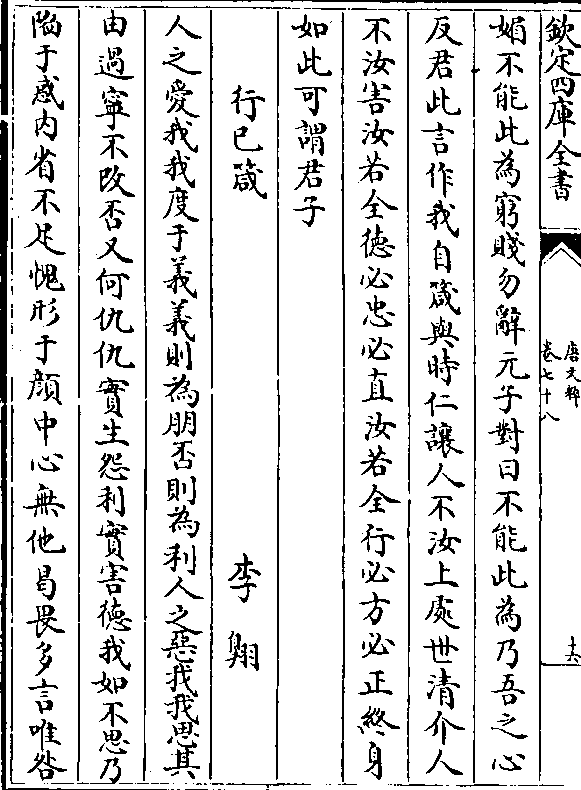 欽定四庫全書
唐文粹
卷七十八
十六
媚不能此為窮賤勿辭元子對曰不能此為乃吾之心
反君此言作我自箴與時仁讓人不汝上處世清介人
不汝害汝若全德必忠必直汝若全行必方必正終身
如此可謂君子
行已箴　李翺
人之愛我我度于義義則為朋否則為利人之惡我我思其
由過寧不改否又何仇仇實生怨利實害德我如不思乃
陷于惑内省不足愧形于顔中心無他曷畏多言唯咎